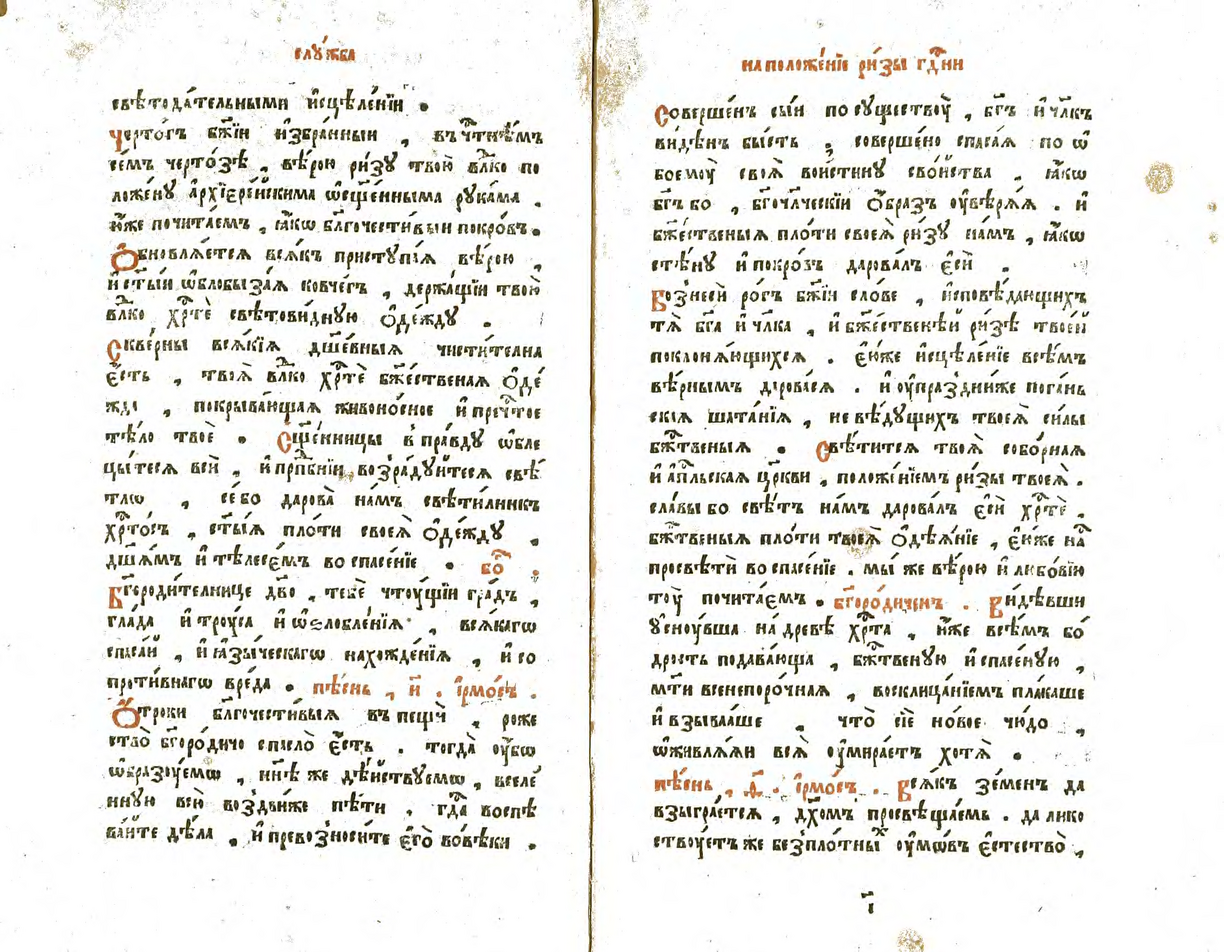 слꙋ́жба
свѣтода́тельными и҆сцѣле́нїи .
Черто́гъ бж҃їи и҆збра́нныи , въ чⷭ҇тнѣ́мъ
се́мъ черто́зѣ , вѣ́рою ри́зꙋ твою̀ влⷣко по
ложе́нꙋ а҆рхїере́йскима ѡ҆сщ҃е́нныма рꙋка́ма .
ю҆́же почита́емъ , ꙗ҆́кѡ бл҃гочести́выи покро́въ .
Ѻ҆бновлѧ́етсѧ всѧ́къ пристꙋпа́ѧ вѣ́рою ,
и҆ ст҃ы́и ѡ҆блобыза́ѧ ковче́гъ , держа́щїи твою̀
влⷣко хрⷭ҇тѐ свѣтови́днꙋю ѻ҆де́ждꙋ .
Скве́рны всѧ́кїѧ дш҃е́вныѧ чисти́телна
є҆́сть , твоѧ̀ влⷣко хрⷭ҇тѐ бж҃е́ственаѧ ѻ҆де́
жда , покрыва́ющаѧ живоно́сное и҆ пречⷭ҇тое
тѣ́ло твоѐ . Сщ҃е́нницы в пра́вдꙋ ѡ҆бле
цы́тесѧ всѝ , и҆ прпⷣбнїи возра́дꙋйтесѧ свѣ́
тлѡ , се́ бо дарова̀ на́мъ свѣти́лникъ
хрⷭ҇то́съ , ст҃ы́ѧ пло́ти своеѧ̀ ѻ҆де́ждꙋ ,
дш҃а́мъ и҆ тѣлесе́мъ во спасе́нїе . боⷢ҇ .
Бг҃ороди́телнице дв҃о , тебѐ чтꙋ́щїи гра́дъ ,
гла́да и҆ трꙋ́са и҆ ѡ҆ѕлобле́нїѧ , всѧ́кагѡ
спаса́й , и҆ ꙗ҆зы́ческагѡ нахожде́нїѧ , и҆ со
проти́внагѡ вреда̀ . пѣ́снь , и҃ . і҆рмо́съ .
Ѻ҆́троки бл҃гочести́выѧ въ пещѝ , роже
ство̀ бг҃оро́дичо спасло̀ є҆́сть . тогда̀ оу҆́бѡ
ѡ҆бразꙋ́емѡ , нн҃ѣ же дѣ́йствꙋемѡ , вселе́
ннꙋю всю̀ воздви́же пѣ́ти . гдⷭ҇а воспѣ
ва́йте дѣла̀ , и҆ превозноси́те є҆го̀ во вѣ́ки .
на положе́нїе ри́зы гдⷭ҇ни
Соверше́нъ сы́и по сꙋществꙋ̀ , бг҃ъ и҆ чл҃къ
ви́дѣнъ бы́сть , соверше́но спаса́ѧ по ѡ҆
боемꙋ̀ своѧ̀ вои́стинꙋ сво́йства . ꙗ҆́кѡ
бг҃ъ бо , бг҃очл҃ческїи ѻ҆́бразъ оу҆вѣрѧ́ѧ . и҆
бж҃ественыѧ пло́ти своеѧ̀ ри́зꙋ на́мъ , ꙗ҆́кѡ
стѣ́нꙋ и҆ покро́въ дарова́лъ є҆сѝ .
Вознесѝ ро́гъ бж҃їи сло́ве , и҆сповѣ́дающихъ
тѧ̀ бг҃а и҆ чл҃ка , и҆ бж҃е́ственѣй ри́зѣ твое́й
поклонѧ́ющихсѧ . є҆́юже и҆сцѣле́нїе всѣ́мъ
вѣ́рнымъ дарова́сѧ . и҆ оу҆праздни́же пога́нь
скїѧ шата́нїѧ , не вѣ́дꙋщихъ твоеѧ̀ си́лы
бжⷭ҇твеныѧ . Свѣ́титсѧ твоѧ̀ собо́рнаѧ
и҆ а҆пⷭ҇льскаѧ цр҃кви , положе́нїемъ ри́зы твоеѧ̀ .
сла́вы бо свѣ́тъ на́мъ дарова́лъ є҆сѝ хрⷭ҇тѐ .
бжⷭ҇твеныѧ пло́ти твоеѧ̀ ѻ҆дѣѧ́нїе , є҆́юже на́съ
просвѣтѝ во спасе́нїе . мы́ же вѣ́рою и҆ любо́вїю
тꙋ̀ почита́емъ . бг҃оро́диченъ . Ви́дѣвши
ᲂу҆снꙋ́вша на дре́вѣ хрⷭ҇та̀ , и҆́же всѣ́мъ бо́
дрость подава́юща , бжⷭ҇твенꙋю и҆ спасе́нꙋю ,
мт҃и всенепоро́чнаѧ , восклица́нїемъ пла́каше
и҆ взыва́аше , что̀ сїѐ но́вое чю́до ,
ѡ҆живлѧ́ѧи всѧ̀ оу҆мира́етъ хотѧ̀ .
пѣ́снь , ѳ҃ . і҆рмо́съ . Всѧ́къ зе́менъ да
взыгра́етсѧ , дх҃омъ просвѣща́емь . да лико
ствꙋ́етъ же безпло́тныⷯ оу҆мѡ́въ є҆стество̀ ,
і҃